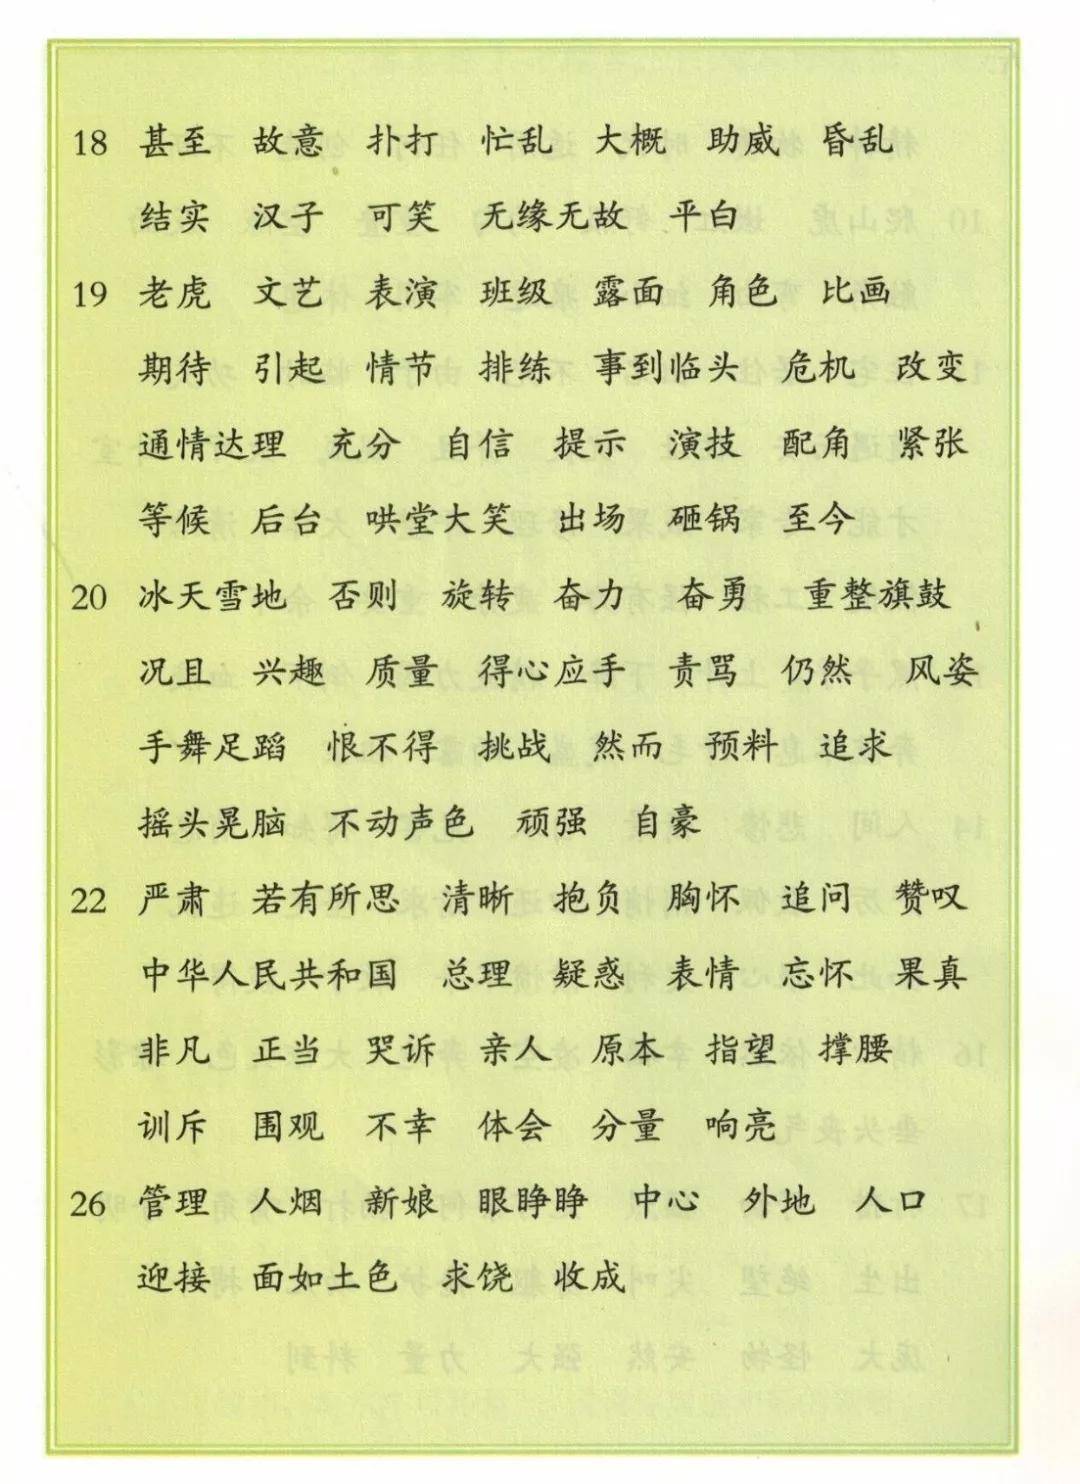 18 甚至 故意 扑打 忙乱 大概 助威 昏乱
结实 汉子 可笑 无缘无故 平白
19 老虎 文艺 表演 班级 露面 角色 比画
期待 引起 情节 排练 事到临头 危机 改变
通情达理 充分 自信 提示 演技 配角 紧张
等候 后台 哄堂大笑 出场 砸锅 至今
20 冰天雪地 否则 旋转 奋力 奋勇 重整旗鼓
况且 兴趣 质量 得心应手 责骂 仍然 风姿
手舞足蹈 恨不得 挑战 然而 预料 追求
摇头晃脑 不动声色 顽强 自豪
22 严肃 若有所思 清晰 抱负 胸怀 追问 赞叹
中华人民共和国 总理 疑惑 表情 忘怀 果真
非凡 正当 哭诉 亲人 原本 指望 撑腰
训斥 围观 不幸 体会 分量 响亮
26 管理 人烟 新娘 眼睁睁 中心 外地 人口
迎接 面如土色 求饶 收成